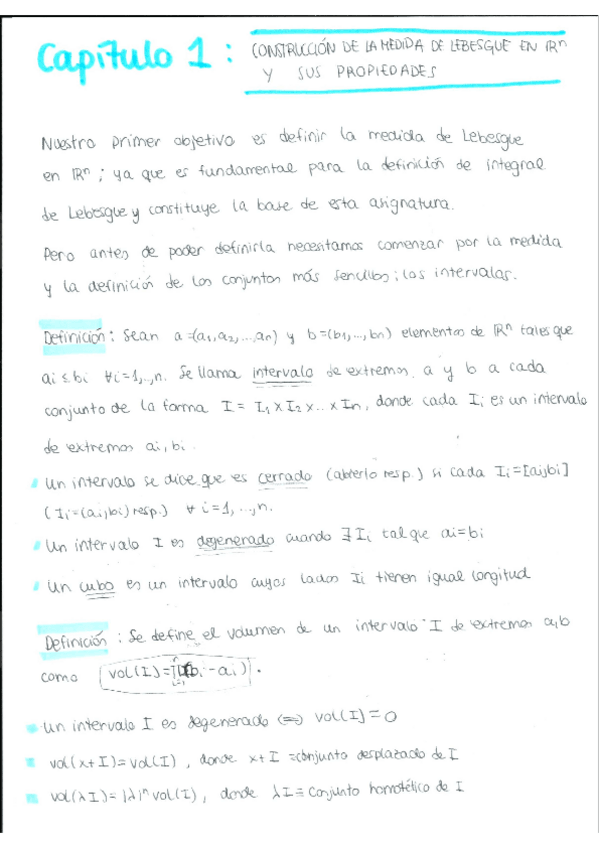 Capítulo 1 : CONSTRUCCIÓN DE LA MEDIDA DE LEBESGUE EN ℝⁿ
Y SUS PROPIEDADES
Nuestro primer objetivo es definir la medida de Lebesgue
en ℝⁿ ; ya que es fundamental para la definición de integral
de Lebesgue y constituye la base de esta asignatura.
Pero antes de poder definirla necesitamos comenzar por la medida
y la definición de los conjuntos más sencillos: los intervalos.
Definición : Sean a=(a₁,a₂,...,aₙ) y b=(b₁,...,bₙ) elementos de ℝⁿ tales que
aᵢ ≤ bᵢ ∀i=1,..,n. Se llama intervalo de extremos a y b a cada
conjunto de la forma I = I₁ × I₂ × .. × Iₙ, donde cada Iᵢ es un intervalo
de extremos aᵢ, bᵢ.
Un intervalo se dice que es cerrado (abierto resp.) si cada Iᵢ=[aᵢ,bᵢ]
(Iᵢ=(aᵢ,bᵢ) resp.) ∀ i=1, ..., n.
Un intervalo I es degenerado cuando ∃ Iᵢ tal que aᵢ=bᵢ
Un cubo es un intervalo cuyos lados Iᵢ tienen igual longitud
Definición : Se define el volumen de un intervalo I de extremos a,b
como vol(I)=∏(bᵢ-aᵢ).
Un intervalo I es degenerado ⟺ vol(I)=0
vol(x+I)=vol(I), donde x+I ≡conjunto desplazado de I
vol(λI)=|λ|ⁿ vol(I), donde λI≡ conjunto homotético de I